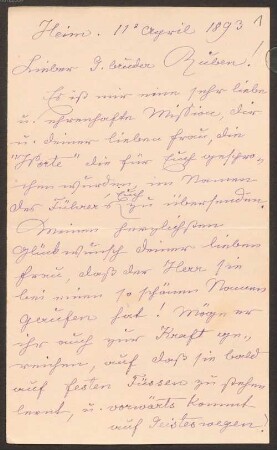 Heim. 11t April 1893
1
Lieber G. bruder Ruben!
Es ist mir eine sehr liebe
u. ehrenhafte Mission, dir
u. deiner lieben Frau, die
"Worte" die für Euch gespro-
chen wurden, im Namen
des Führer's Euch zu übersenden.
Meinen herzlichsten
Glückwunsch deiner lieben
Frau, daß der Herr sie
bei einen so schönen Namen
gerufen hat! Möge er
ihr auch zur Kraft ge-
reichen, auf daß sie bald
auf festen Füssen zu stehen
lernt, u. vorwärts kommt
auf Geisteswegen!